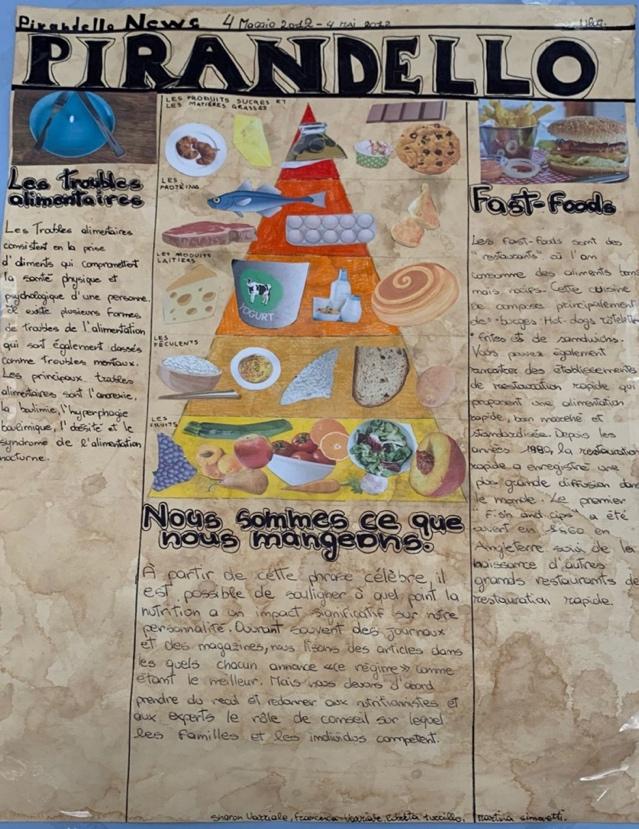 Pirandello News 4 Maggio 2022 - 4 mai 2022
PIRANDELLO
Les Troubles
alimentaires
Les Troubles alimentaires
consistent en la prise
d'aliments qui compromettent
la santé physique et
psychologique d'une personne.
Il existe plusieurs formes
de troubles de l'alimentation
qui sont également classés
comme troubles mentaux.
Les principaux troubles
alimentaires sont l'anorexie,
la boulimie, l'hyperphagie
boulimique, l'obésité et le
syndrome de l'alimentation
nocturne.
LES PRODUITS SUCRES ET
LES MATIÈRES GRASSES
LES
PROTÉINS
LES PRODUITS
LAITIERS
YOGURT
LES
FÉCULENTS
LES
FRUITS
Nous sommes ce que
nous mangeons.
À partir de cette phrase célèbre, il
est possible de souligner à quel point la
nutrition a un impact significatif sur notre
personnalité. Ouvrant souvent des journaux
et des magazines, nous lisons des articles dans
les quels chacun annonce «le régime» comme
étant le meilleur. Mais nous devons d'abord
prendre du recul et redonner aux nutritionnistes et
aux experts le rôle de conseil sur lequel
les familles et les individus comptent.
Fast-Foods
Les Fast-foods sont des
"restaurants" où l'on
consomme des aliments bons
mais nocifs. Cette cuisine
se compose principalement
des burgers Hot-dogs
frites et de sandwichs.
Vous pouvez également
rencontrer des établissements
de restauration rapide qui
proposent une alimentation
rapide, bon marché et
standardisée. Depuis les
années 1980, la restauration
rapide a enregistré une
plus grande diffusion dans
le monde. Le premier
"Fish and cips" a été
ouvert en 1860 en
Angleterre suivi de la
naissance d'autres
grands restaurants de
restauration rapide.
Sharon Varriale, Francesca Varriale, Martina Simonetti.